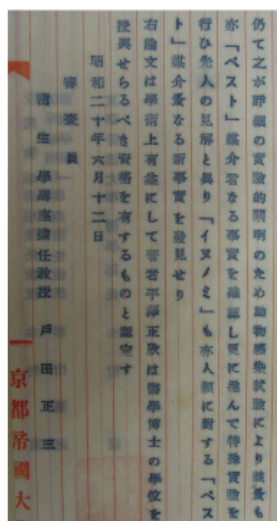 仍て之が詳細の實驗的闡明のため動物感染試驗により該蚤も
亦「ペスト」媒介者なる事實を確認し更に進んで特殊實驗を
行ひ先人の見解と異り「イヌノミ」も亦人類に對する「ペス
ト」媒介蚤なる新事實を發見せり
右論文は學術上有益にして著者平澤正欣は醫學博士の學位を
授與せらるべき資格を有するものと認定す
昭和二十年六月十二日
審査員
衞生學講座擔任教授 戸田正三
京都帝國大